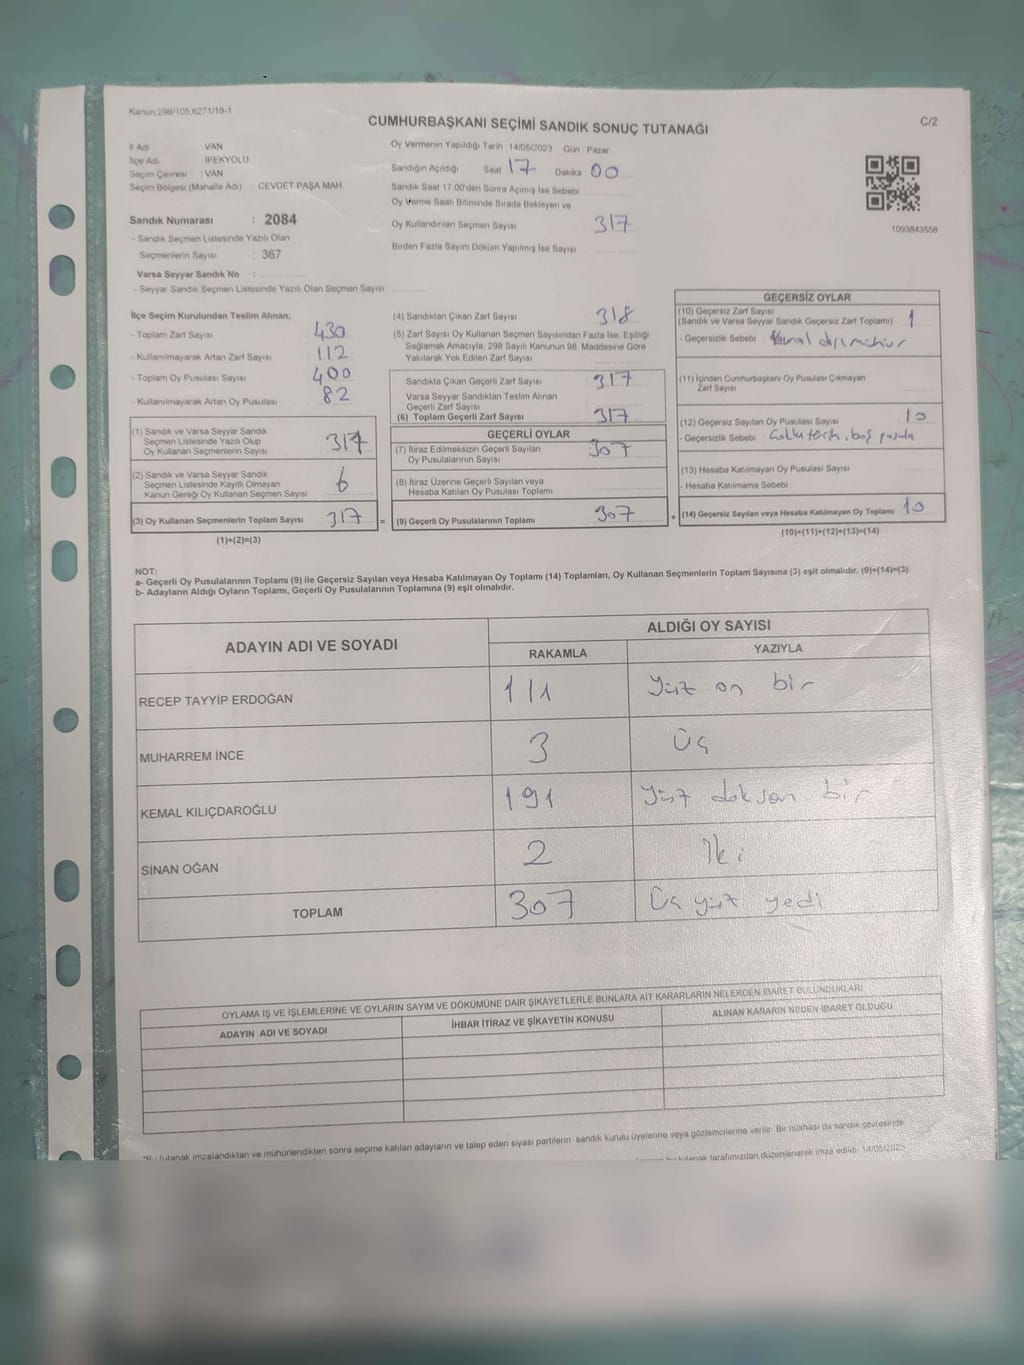 Kanun:298/105,6271/18-1
CUMHURBAŞKANI SEÇİMİ SANDIK SONUÇ TUTANAĞI
C/2
İl Adı : VAN
İlçe Adı : İPEKYOLU
Seçim Çevresi : VAN
Seçim Bölgesi (Mahalle Adı) : CEVDET PAŞA MAH.
Sandık Numarası : 2084
- Sandık Seçmen Listesinde Yazılı Olan
Seçmenlerin Sayısı : 367
Varsa Seyyar Sandık No :
- Seyyar Sandık Seçmen Listesinde Yazılı Olan Seçmen Sayısı
Oy Vermenin Yapıldığı Tarih 14/05/2023 Gün : Pazar
Sandığın Açıldığı Saat 17 Dakika 00
Sandık Saat 17.00'den Sonra Açımış İse Sebebi
Oy Verme Saati Bitiminde Sırada Bekleyen ve
Oy Kullandırılan Seçmen Sayısı 317
Birden Fazla Sayım Döküm Yapılmış İse Sayısı
1093843558
İlçe Seçim Kurulundan Teslim Alınan;
- Toplam Zarf Sayısı 430
- Kullanılmayarak Artan Zarf Sayısı 112
- Toplam Oy Pusulası Sayısı 400
- Kullanılmayarak Artan Oy Pusulası 82
(1) Sandık ve Varsa Seyyar Sandık
Seçmen Listesinde Yazılı Olup
Oy Kullanan Seçmenlerin Sayısı 317
(2) Sandık ve Varsa Seyyar Sandık
Seçmen Listesinde Kayıtlı Olmayan
Kanun Gereği Oy Kullanan Seçmen Sayısı 6
(3) Oy Kullanan Seçmenlerin Toplam Sayısı 317 =
(1)+(2)=(3)
(4) Sandıktan Çıkan Zarf Sayısı 318
(5) Zarf Sayısı Oy Kullanan Seçmen Sayısından Fazla İse, Eşitliği
Sağlamak Amacıyla; 298 Sayılı Kanunun 98. Maddesine Göre
Yakılarak Yok Edilen Zarf Sayısı
Sandıkta Çıkan Geçerli Zarf Sayısı 317
Varsa Seyyar Sandıktan Teslim Alınan
Geçerli Zarf Sayısı
(6) Toplam Geçerli Zarf Sayısı 317
GEÇERLİ OYLAR
(7) İtiraz Edilmeksizin Geçerli Sayılan
Oy Pusulalarının Sayısı 307
(8) İtiraz Üzerine Geçerli Sayılan veya
Hesaba Katılan Oy Pusulası Toplamı
(9) Geçerli Oy Pusulalarının Toplamı 307 +
GEÇERSİZ OYLAR
(10) Geçersiz Zarf Sayısı
(Sandık ve Varsa Seyyar Sandık Geçersiz Zarf Toplamı) 1
- Geçersizlik Sebebi :
(11) İçinden Cumhurbaşkanı Oy Pusulası Çıkmayan
Zarf Sayısı
(12) Geçersiz Sayılan Oy Pusulası Sayısı 10
- Geçersizlik Sebebi boş pusula
(13) Hesaba Katılmayan Oy Pusulası Sayısı
- Hesaba Katılmama Sebebi
(14) Geçersiz Sayılan veya Hesaba Katılmayan Oy Toplamı 10
(10)+(11)+(12)+(13)=(14)
NOT:
a- Geçerli Oy Pusulalarının Toplamı (9) ile Geçersiz Sayılan veya Hesaba Katılmayan Oy Toplamı (14) Toplamları, Oy Kullanan Seçmenlerin Toplam Sayısına (3) eşit olmalıdır. (9)+(14)=(3)
b- Adayların Aldığı Oyların Toplamı, Geçerli Oy Pusulalarının Toplamına (9) eşit olmalıdır.
ADAYIN ADI VE SOYADI
ALDIĞI OY SAYISI
RAKAMLA YAZIYLA
RECEP TAYYİP ERDOĞAN 111 Yüz on bir
MUHARREM İNCE 3 Üç
KEMAL KILIÇDAROĞLU 191 Yüz doksan bir
SİNAN OĞAN 2 İki
TOPLAM 307 Üç yüz yedi
OYLAMA İŞ VE İŞLEMLERİNE VE OYLARIN SAYIM VE DÖKÜMÜNE DAİR ŞİKAYETLERLE BUNLARA AİT KARARLARIN NELERDEN İBARET BULUNDUKLARI
ADAYIN ADI VE SOYADI İHBAR İTİRAZ VE ŞİKAYETİN KONUSU ALINAN KARARIN NEDEN İBARET OLDUĞU
*Bu tutanak imzalandıktan ve mühürlendikten sonra seçime katılan adayların ve talep eden siyasi partilerin sandık kurulu üyelerine veya gözlemcilerine verilir. Bir nüshası da sandık çevresinde
bu tutanak tarafımızdan düzenlenerek imza edildi. 14/05/2023